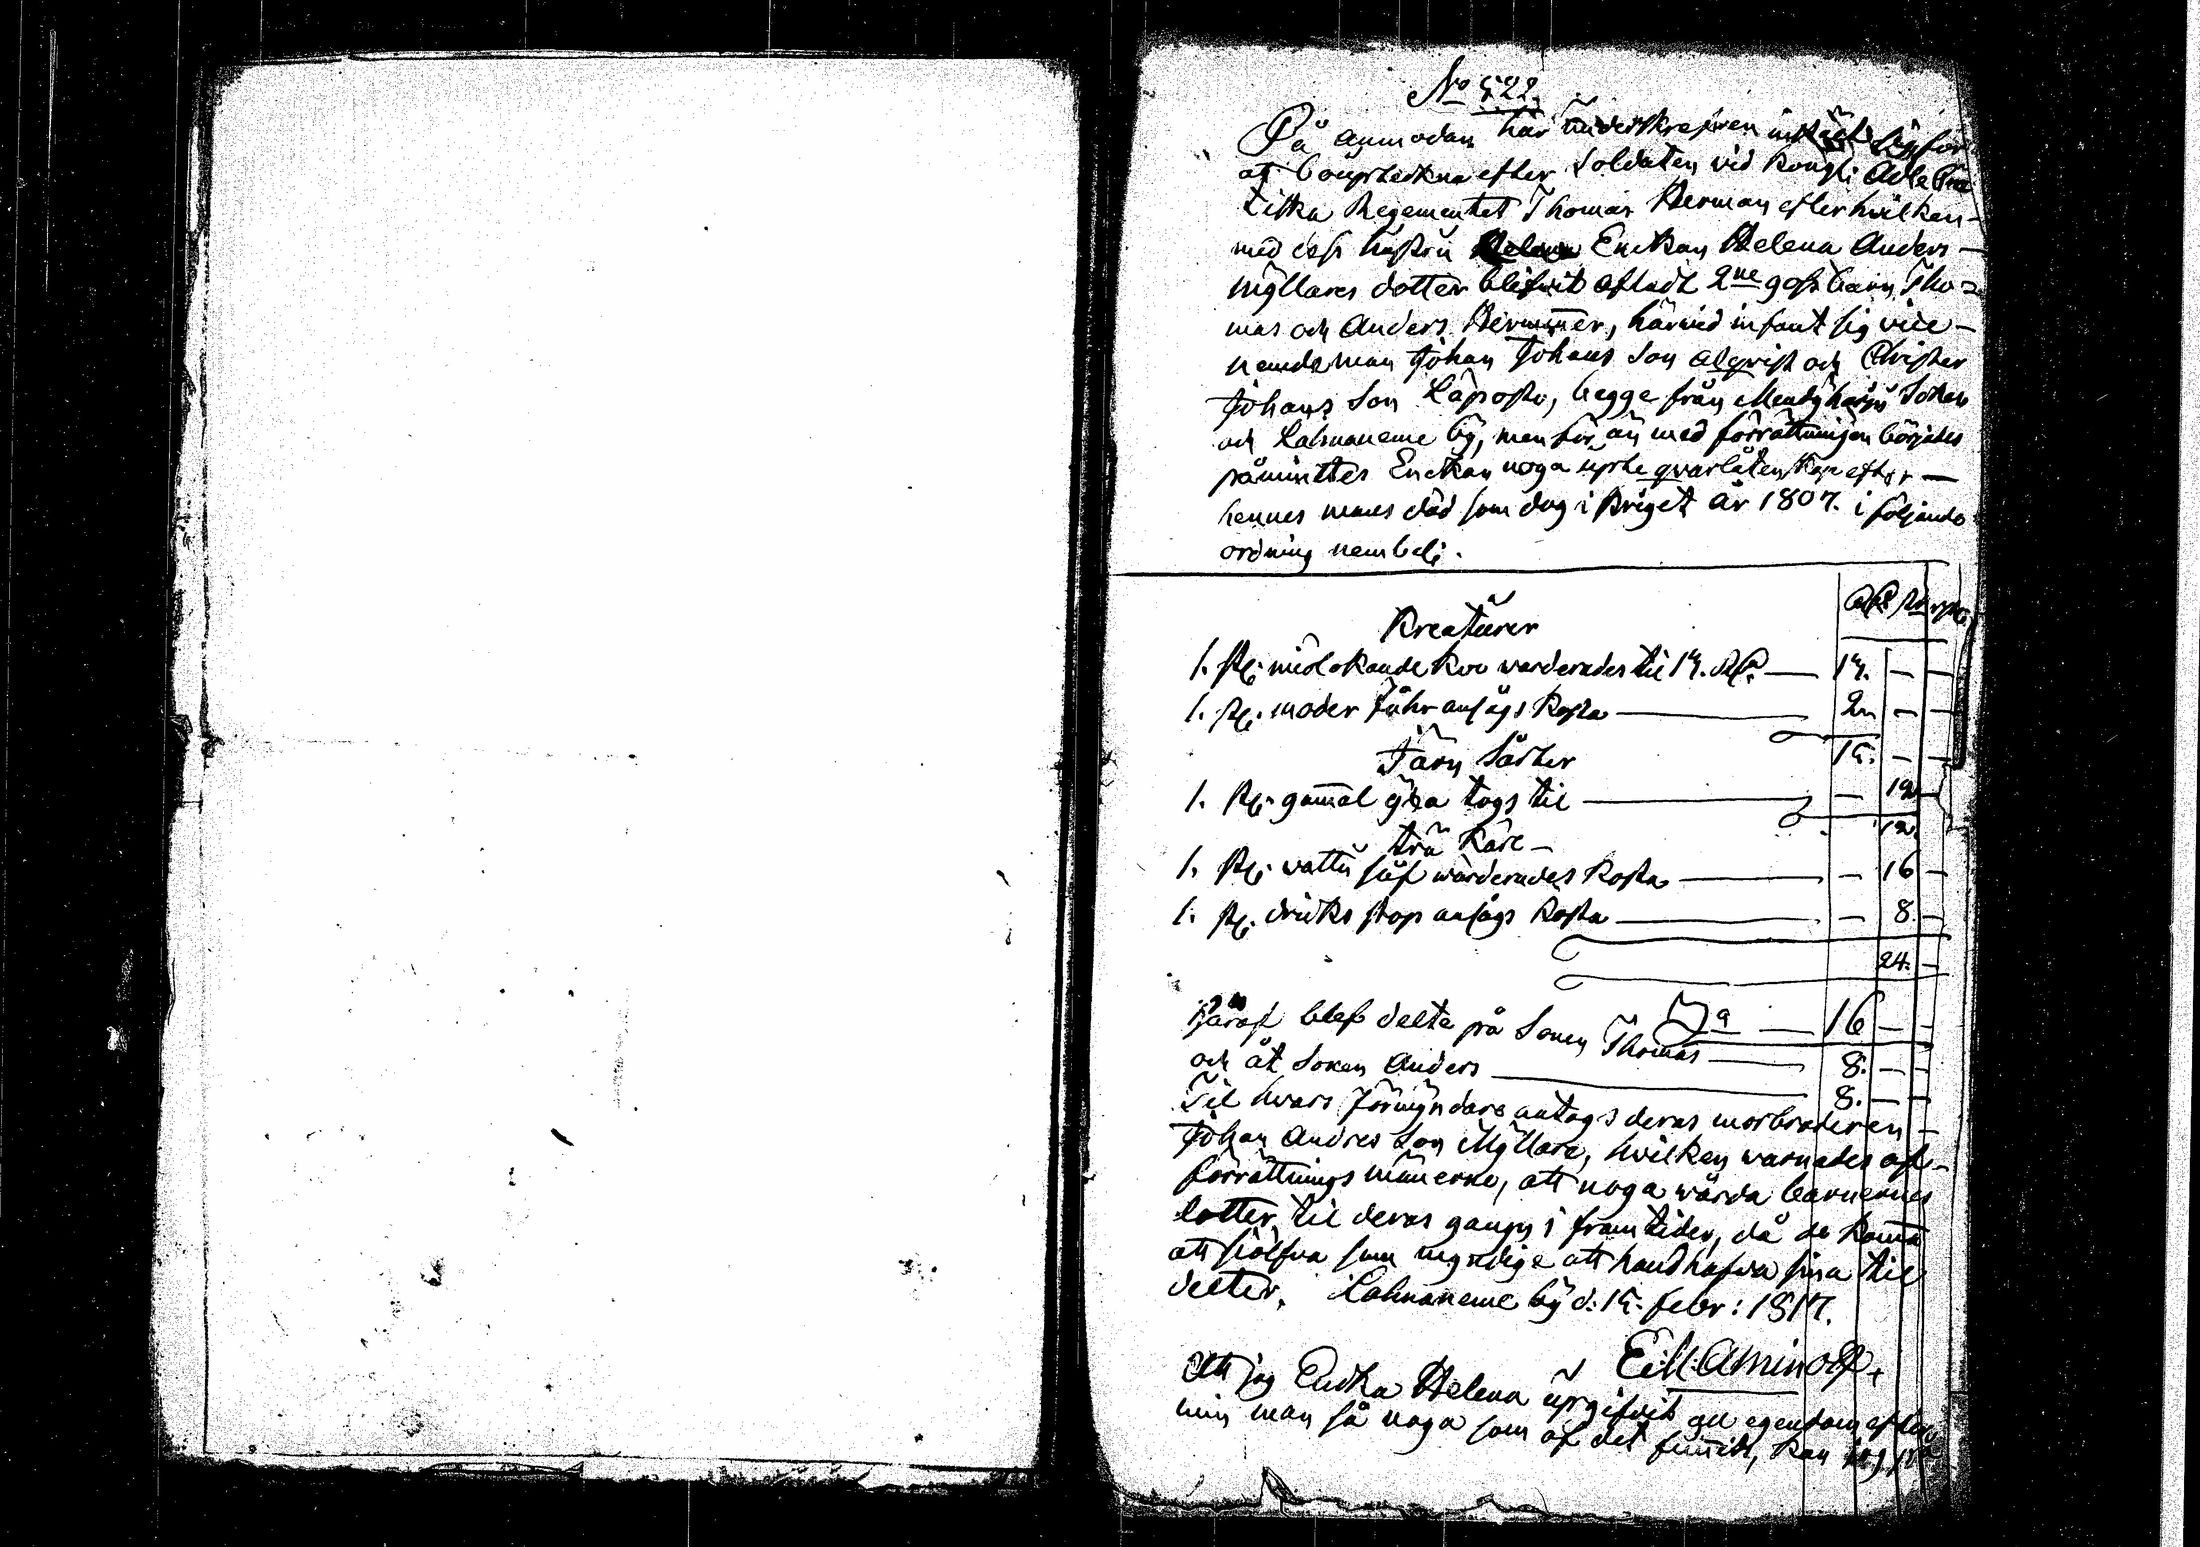 No 522.
På anmodan har underskrefven instält sig för
at bouptekna efter Soldaten vid Kongli: Adle
Regementet Thomas Herman efter hvilken
med des hustru Enckan Helena Anders
myllares dotter blifvit afladt 2ne goss barn Tho=
mas och Anders Hermaner, härvid infant sig vice
nemdeman Johan Johans Son Alqvist och Christer
Johans Son Läposto, begge från Mendyharju Soken
och Lahnaneme by, men för än med förrättningen börjades
påmintes Enckan noga upte qvarlåtenskapen efter
hennes mans död som dog i kriget år 1807. i följande
ordning nembeli.
Kreaturer
1. st: miölckande ko värderades til 14. — 14. — —
1. st: moder Fåhr ansågs kosta — 2 — —
Järn Sårter — —
1. st: gamal yxa togs til — — 12 —
12.
trä Käril
1. st: vattu så värderades kosta — — 16 —
1. st: dricks stop ansågs kosta — — 8. —
24. —
Sa — 16 — —
häraf blef delta på Sonen Thomas — 8. — —
och åt Sonen Anders — 8. — —
Til hvars Förmyndare antogs deras morbroderen
Johan Andres Son Myllare, hvilken varnades af
förrättnings männerne, att noga vårda barnernes
lotter til deras gangn i framtiden, då de komma
att siölfva som mÿndige att handhafva sina til
delter. Lahnaneme by d: 15. febr: 1817.
E:M: Aminoff
Att jag Encka Helena upgifvit all egendom efter
min man så noga som af det funnits, kan jag